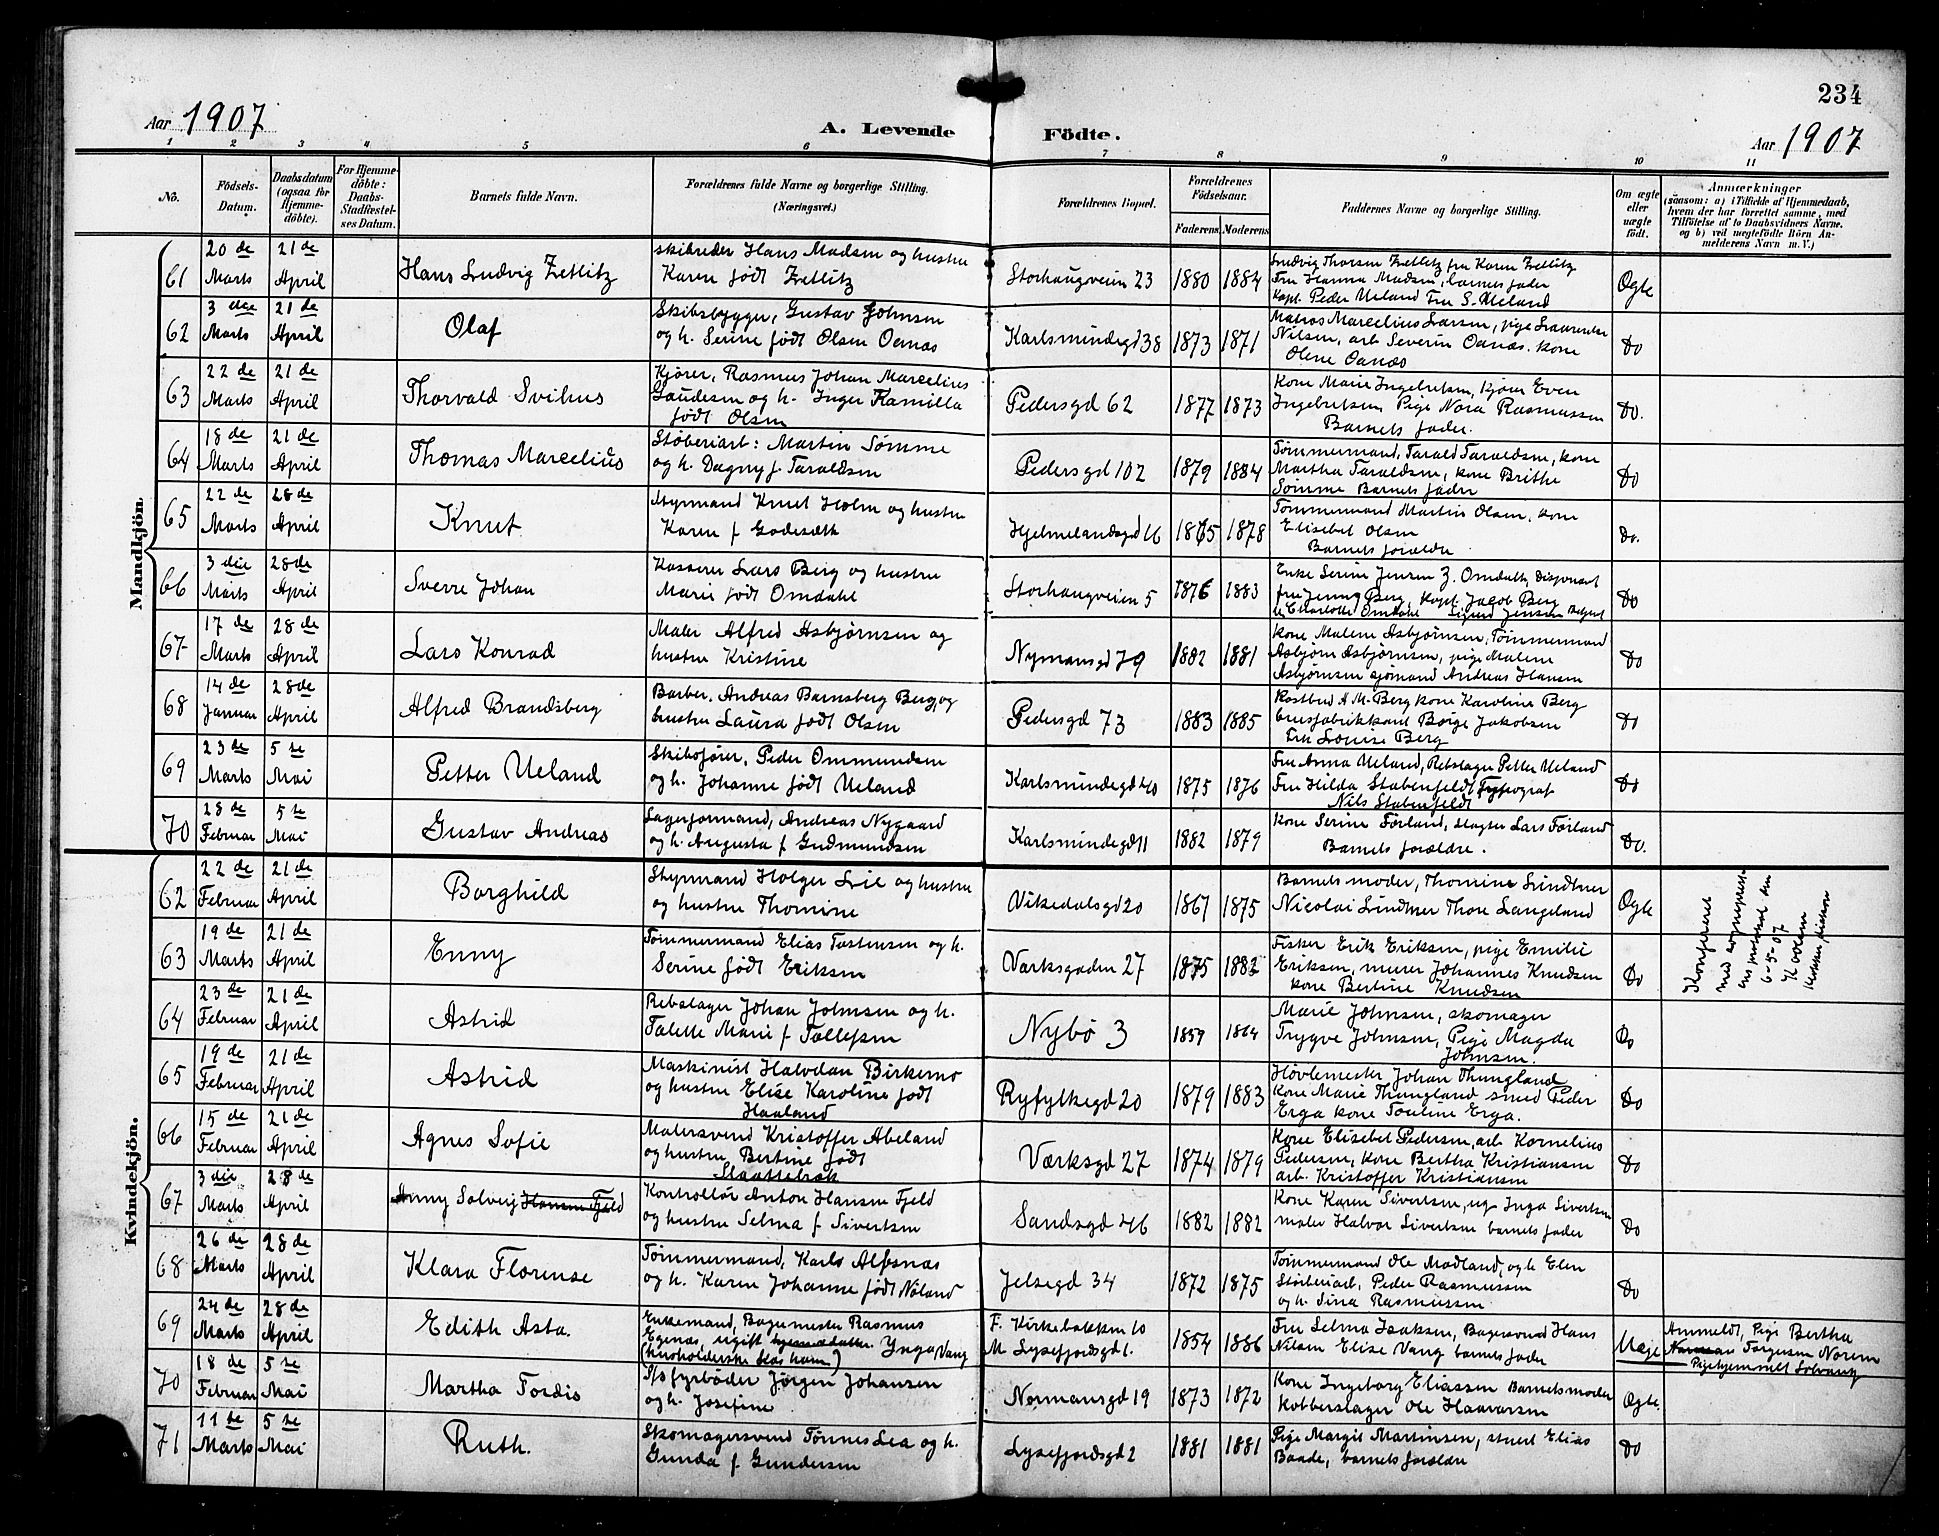 234
Aar 1907
A. Levende Födte.
Aar 1907
1 2 3 4 5 6 7 8 9 10 11
No.
Födsels-Datum.
Daabsdatum (ogsaa for Hjemmedöbte).
For Hjemmedöbte: Daabs-Stadfæstelses Datum.
Barnets fulde Navn.
Forældrenes fulde Navne og borgerlige Stilling.
(Næringsvei.)
Forældrenes Bopæl.
Forældrenes Födselsaar.
Faderens. Moderens.
Faddernes Navne og borgerlige Stilling.
Om ægte eller uægte født.
Anmærkninger
(saasom: a) i Tilfælde af Hjemmedaab, hvem der har forrettet samme, med Tilföielse af to Daabsvidners Navne, og b) ved uægtefödte Börn Anmelderens Navn m. V.)
Mandkjön.
61 20de Marts 21de April Hans Ludvig Zetlitz skibsreder Hans Madsen og hustru Karen født Zetlitz Storhaugveien 23 1880 1884 Ludvig Thorsen Zetlitz fru Karen Zetlitz Fru Hanna Madsen, barnets fader Kapt. Peder Ueland Fru S. Ueland Ægte
62 3die Marts 21de April Olaf Skibsbygger, Gustav Johnsen og h. Serine født Olsen Oanæs Karlsmindegd 38 1873 1871 Matros Marcelius Larsen, pige Nilsen, arb Severin Oanæs, kone Olene Oanæs Do
63 22de Marts 21de April Thorvald Svihus Kjører, Rasmus Johan Marcelius Gaudesen og h. Inger Kamilla født Olsen Pedersgd 62 1877 1873 Kone Marie Ingebretsen, Kjører Even Ingebretsen, Pige Nora Rasmussen Barnets fader. Do.
64 18de Marts 21de April Thomas Marcelius Støberiarb: Martin Sømme og h. Dagny f. Taraldsen Pedersgd 102 1879 1884 Tømmermand, Tarald Taraldsen, kone Martha Taraldsen, kone Brithe Sømme Barnets fader Do
65 22de Marts 28de April Knut Styrmand Knut Holm og hustru Karen f Godesæth Hjelmelandsgd 16 1875 1878 Tømmermand Martin Olsen, kone Elisebet Olsen Barnets forældre Do.
66 3die Marts 28de April Sverre Johan Kasserer Lars Berg og hustru Marie født Omdahl Storhaugveien 5 1876 1883 Enke Serine Jensen Z. Omdahl, Disponent fru Jenny Berg, Kapt. Jacob Berg Charlotte Omdahl Sigurd Jensen Do
67 17de Marts 28de April Lars Konrad Maler Alfred Asbjørnsen og hustru Kristine Nymansgd 79 1882 1881 Kone Malene Asbjørnsen, Tømmermand Asbjørn Asbjørnsen, pige Malene Asbjørnsen sjømand Andreas Hansen Do
68 14de Januar 28de April Alfred Brandsberg Barber, Andreas Barnsberg Berg, og hustru Laura født Olsen Pedersgd 73 1883 1885 Postbud A M. Berg kone Karoline Berg brusfabrikkant Børge Jakobsen Fru Lovise Berg Do
69 23de Marts 5te Mai Petter Ueland Skibsfører, Peder Ommundsen og h. Johanne født Ueland Karlsmindegd 40 1875 1876 Fru Anna Ueland, Rebslager Petter Ueland Fru Hilda Stabenfeldt, Typograf Nils Stabenfeldt Do
70 28de Februar 5te Mai Gustav Andreas Lagerformand, Andreas Nygaard og h. Augusta f Gudmundsen Karlsmindegd 11 1882 1879 Kone Serine Førland, slagter Lars Førland Barnets forældre. Do.
Kvindekjön.
62 22de Februar 21de April Borghild Styrmand Holger Lie og hustru og hustru Thomine Vikedalsgd 20 1867 1875 Barnets moder, Thomine Lindtner Nicolai Lindtner Thore Langeland Ægte
63 19de Marts 21de April Enny Tømmermand Elias Tostensen og h. Serine født Eriksen Værksgaden 27 1875 1882 Fisker Erik Eriksen, pige Emilie Eriksen, murer Johannes Knudsen kone Bertine Knudsen Do
Konfereret med sogneprestens protokol den 6-5-07
64 23de Februar 21de April Astrid Rebslager Johan Johnsen og h. Talette Marie f Tollefsen Nybø 3 1859 1864 Marie Johnsen, skomager Trygve Johnsen, Pige Magda Johnsen. Do
65 19de Februar 21de April Astrid Maskinist Halvdan Birkemo og hustru Elise Karoline født Haaland Ryfylkegd 20 1879 1883 Høvlemester Johan Thungland Kone Marie Thungland smed Peder Erga kone Tomine Erga. Do
66 15de Februar 21de April Agnes Sofie Malersvend Kristoffer Abeland og hustru Bertine født Slaattebræk Værksgd 27 1874 1879 Kone Elisebet Pedersen, arb Kornelius Pedersen, kone Bertha Kristiansen arb. Kristoffer Kristiansen Do
67 3die Marts 28de April Anny Solveig Hansen Fjeld Kontrollør Anton Hansen Fjeld og hustru Selma f Sivertsen Sandsgd 46 1882 1882 Kone Karen Sivertsen, ug Inga Sivertsen maler Halvor Sivertsen barnets fader Do
68 26de Marts 28de April Klara Florense Tømmermand, Karls Alfsnæs og h. Karen Johanne født Nøland Jelsegd 34 1872 1875 Tømmermand Ole Modland, og h Elen Støberiarb, Peder Rasmussen og h. Sina Rasmussen Do
69 24de Marts 28de April Edith Asta. Enkemand, Bagermester Rasmus Egenæs, ugift Ynga Vang (husholderske hos ham) F. Kirkebakken 10 M Lysefjordsgd 1. 1854 1886 Fru Selma Isaksen, Bagersvend Hans Nilsen Elise Vang barnets fader Uægte Anmeldt, Pige Bertha Torgersen Norem Pigehjemmet Solvang
70 18de Februar 5te Mai Martha Tordis fyrbøder Jørgen Johansen og h. Josefine Normansgd 19 1873 1872 Kone Ingeborg Eliassen Barnets moder Kobberslager Ole Haavarsen Ægte.
71 11de Marts 5te Mai Ruth. Skomagersvend Tønnes Lea og h. Gunda f Gundersen Lysefjordsgd 2 1881 1881 Pige Margit Martinsen, stuert Elias Baade, barnets forældre Do